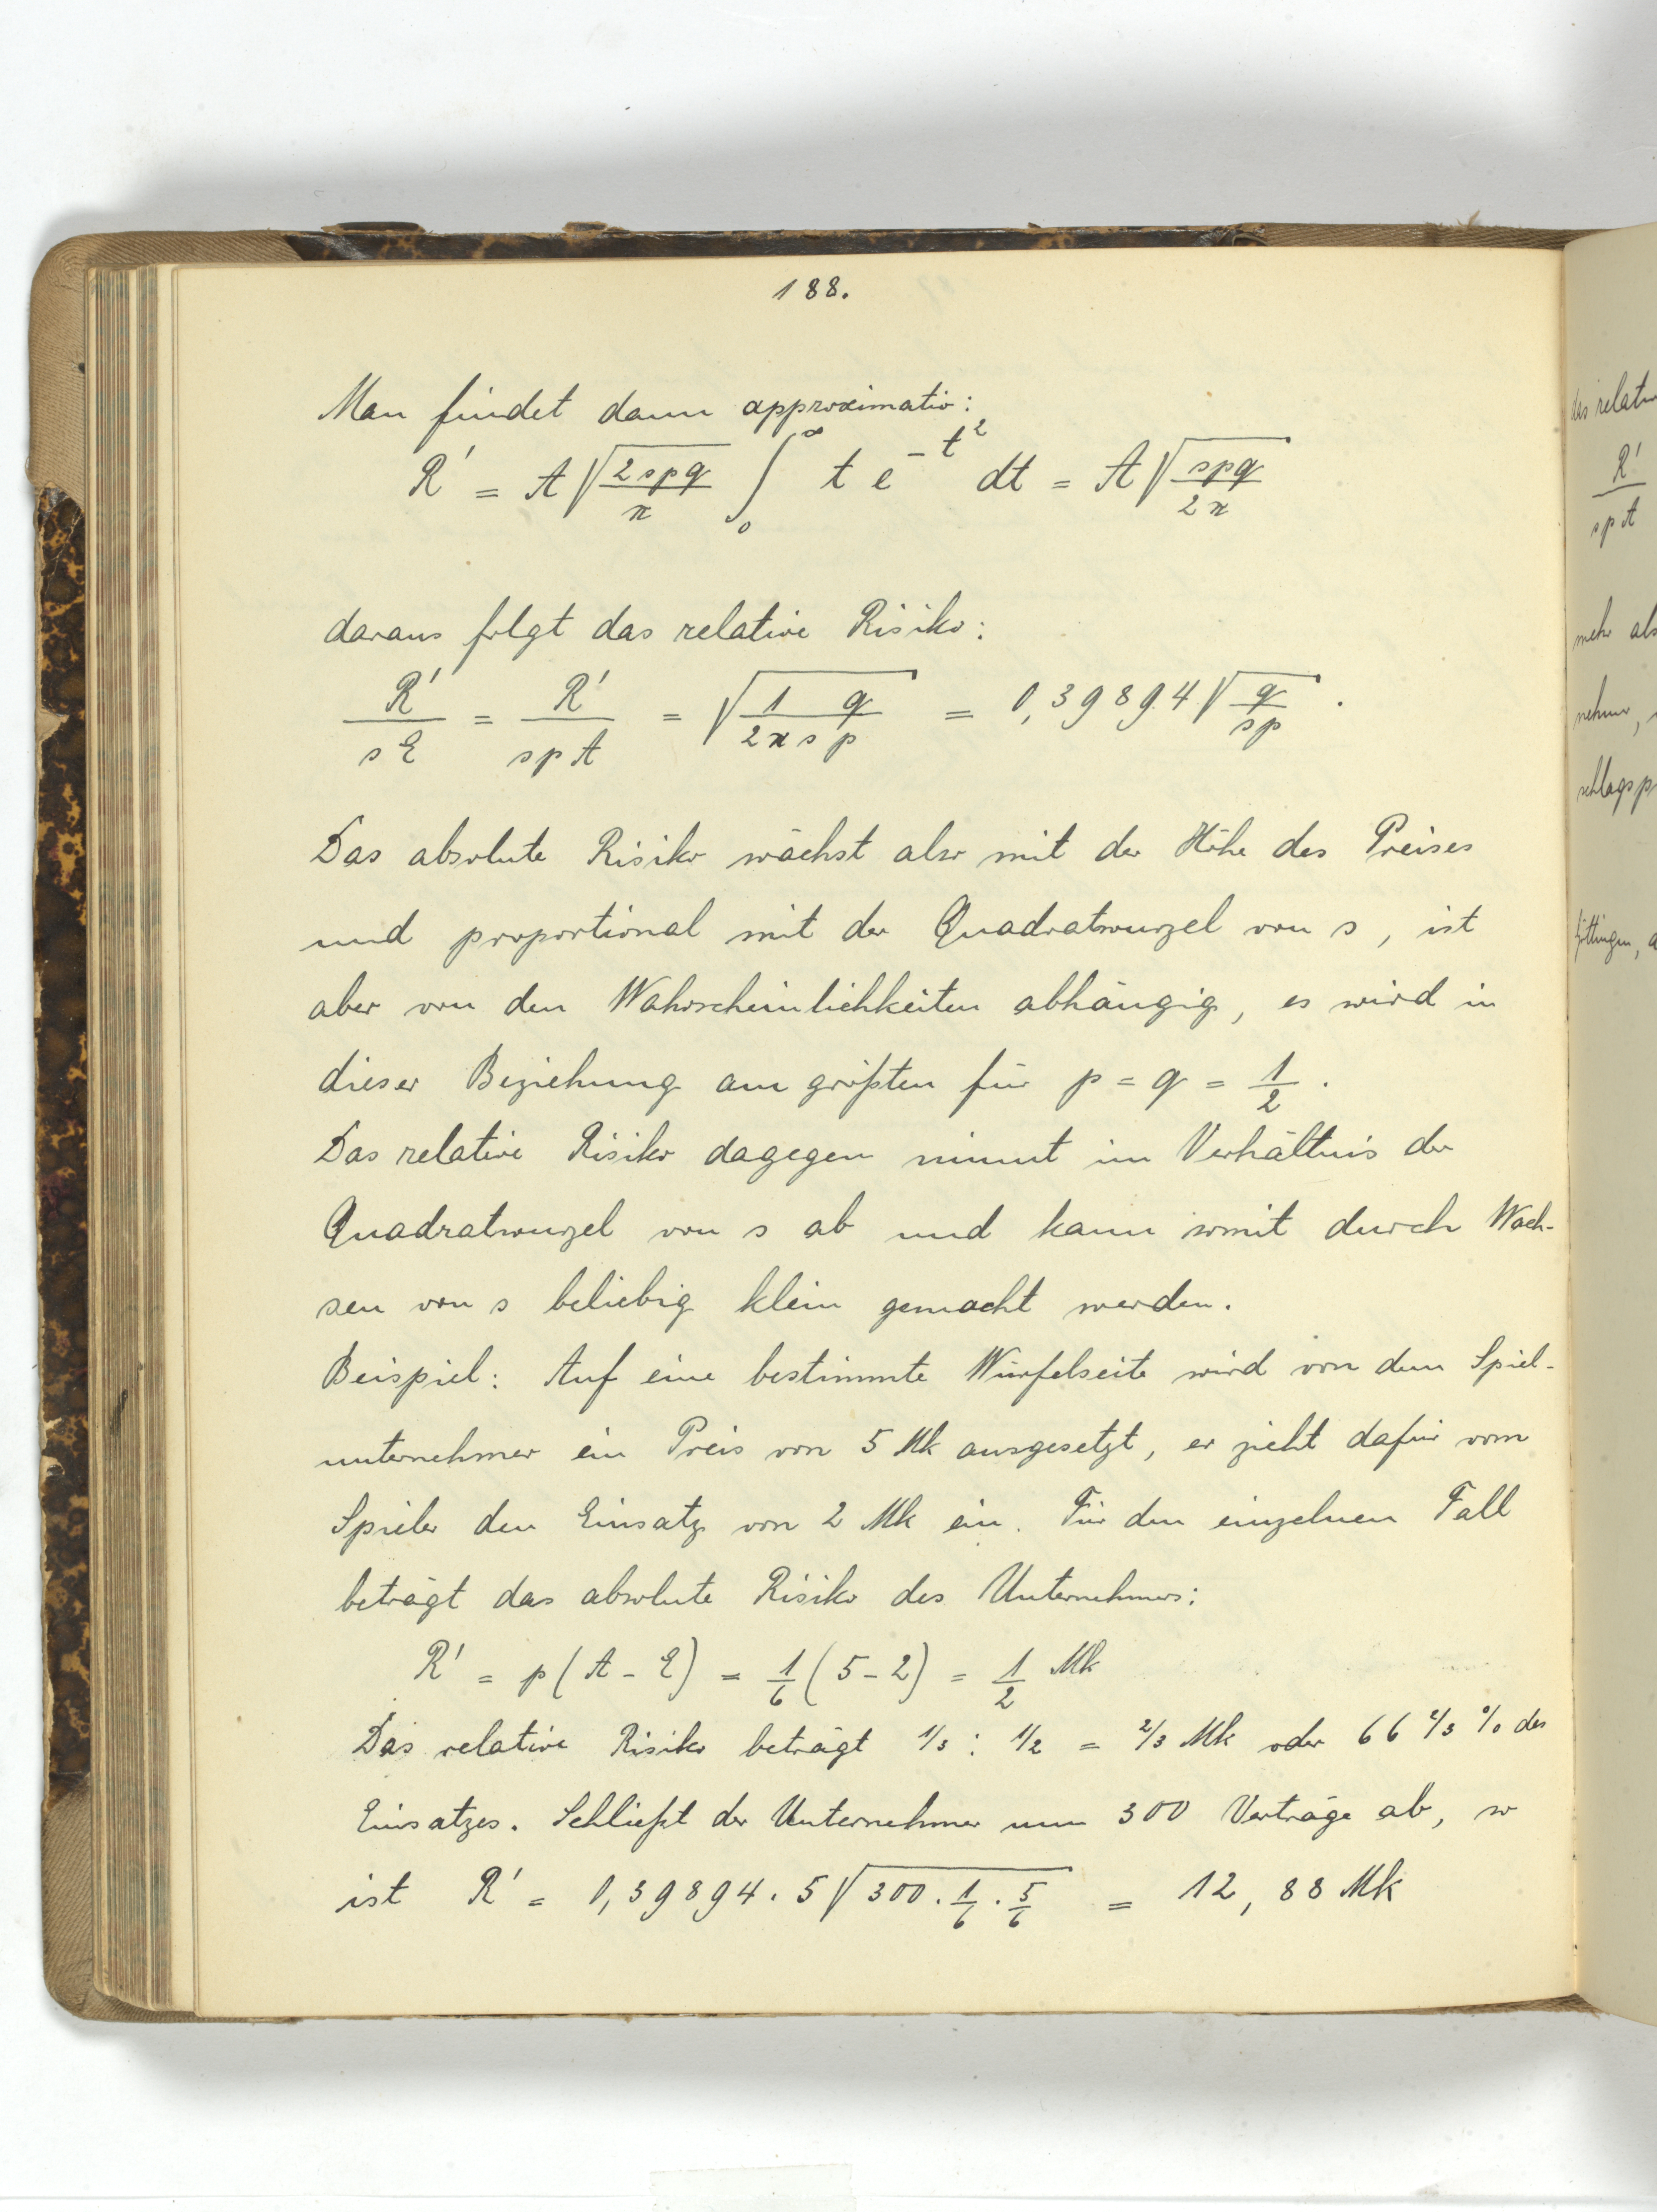 188.
Man findet dann approximativ:
R' = A √(2spq/π) ∫₀^∞ t e^(-t²) dt = A √(spq/2π)
daraus folgt das relative Risiko:
R'/sE = R'/spA = √(1 q/2π s p) = 0,39894 √(q/sp) .
Das absolute Risiko wächst also mit der Höhe des Preises
und proportional mit der Quadratwurzel von s, ist
aber von den Wahrscheinlichkeiten abhängig, es wird in
dieser Beziehung am größten für p = q = 1/2 .
Das relative Risiko dagegen nimmt im Verhältnis der
Quadratwurzel von s ab und kann somit durch Wach-
sen von s beliebig klein gemacht werden.
Beispiel: Auf eine bestimmte Würfelseite wird von dem Spiel-
unternehmer ein Preis von 5 Mk ausgesetzt, er zieht dafür vom
Spieler den Einsatz von 2 Mk ein. Für den einzelnen Fall
beträgt das absolute Risiko des Unternehmers:
R' = p(A - E) = 1/6 (5 - 2) = 1/2 Mk
Das relative Risiko beträgt 1/3 : 1/2 = 2/3 Mk oder 66 2/3 % des
Einsatzes. Schließt der Unternehmer nun 300 Verträge ab, so
ist R' = 0,39894 . 5 √(300 . 1/6 . 5/6) = 12,88 Mk
R'/spA
mehr als